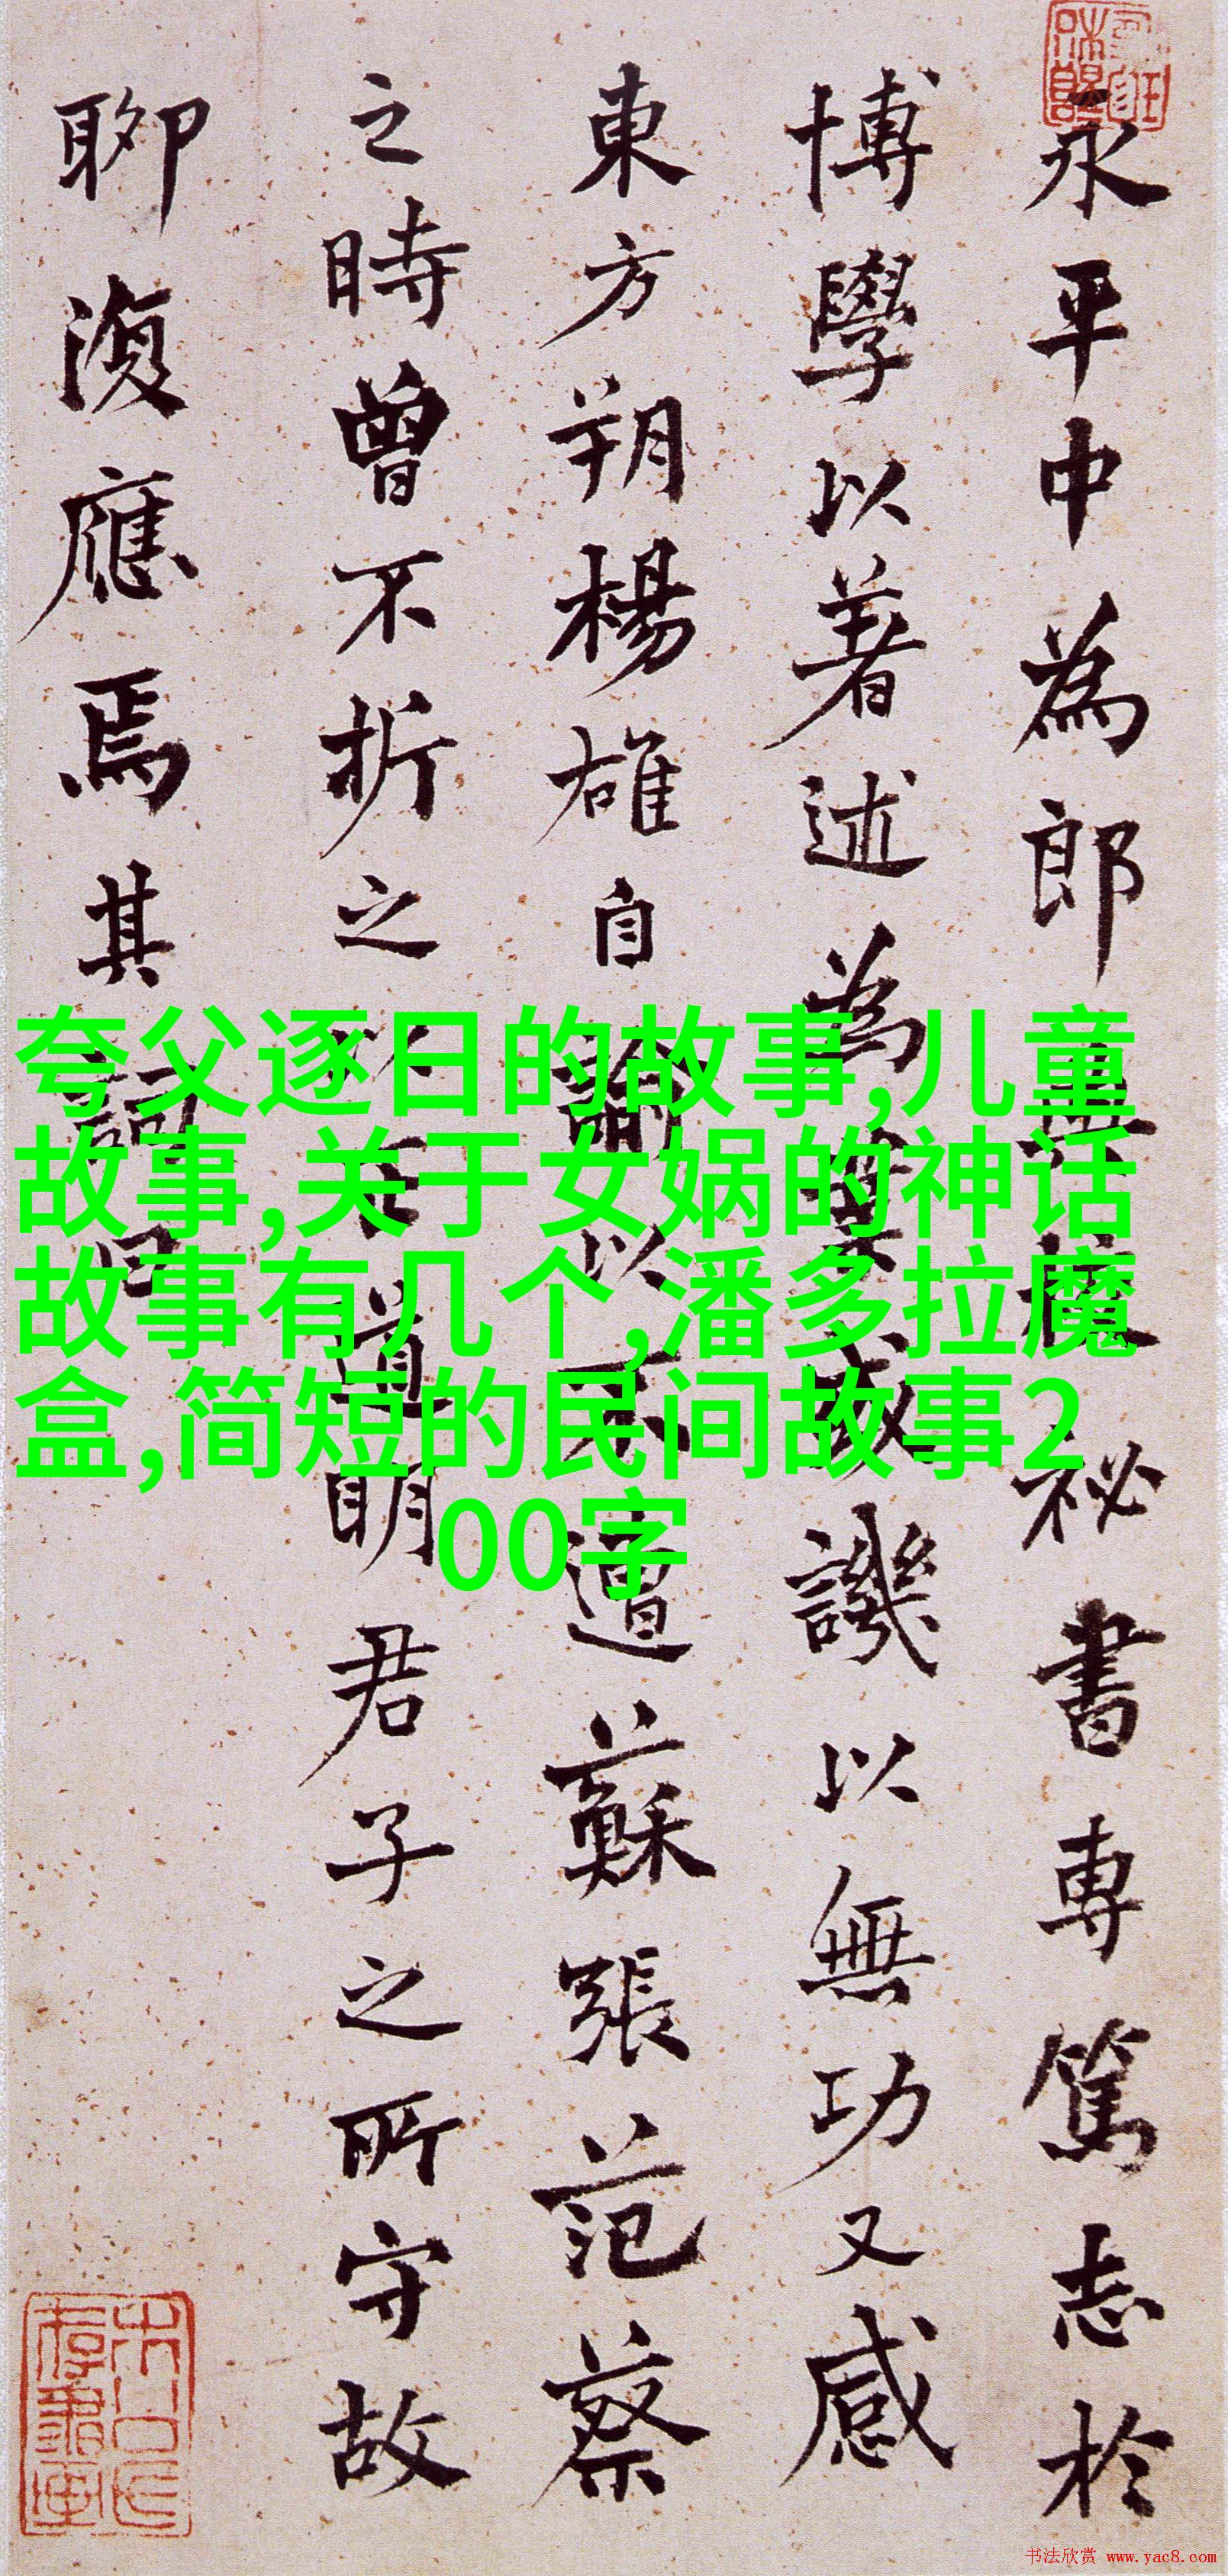 永平中為郎典校祕書專篤志於
博學以著述為業或譏以無功又感
東方朔楊雄自諭以不遭蘇張范蔡
之時曾不折之以正道明君子之所守故
聊復應焉其詞曰
夸父逐日的故事,儿童
故事,关于女娲的神话
故事有几个,潘多拉魔
盒,简短的民间故事2
00字
书法欣赏 www.yac8.com